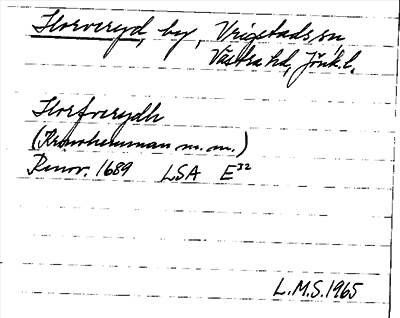 Horveryd, by, Vrigstads sn
Västra hd, Jönk.l.
Horfverydh
(Kronohemman m.m.)
Renov. 1689 LSA E³²
L.M.S. 1965